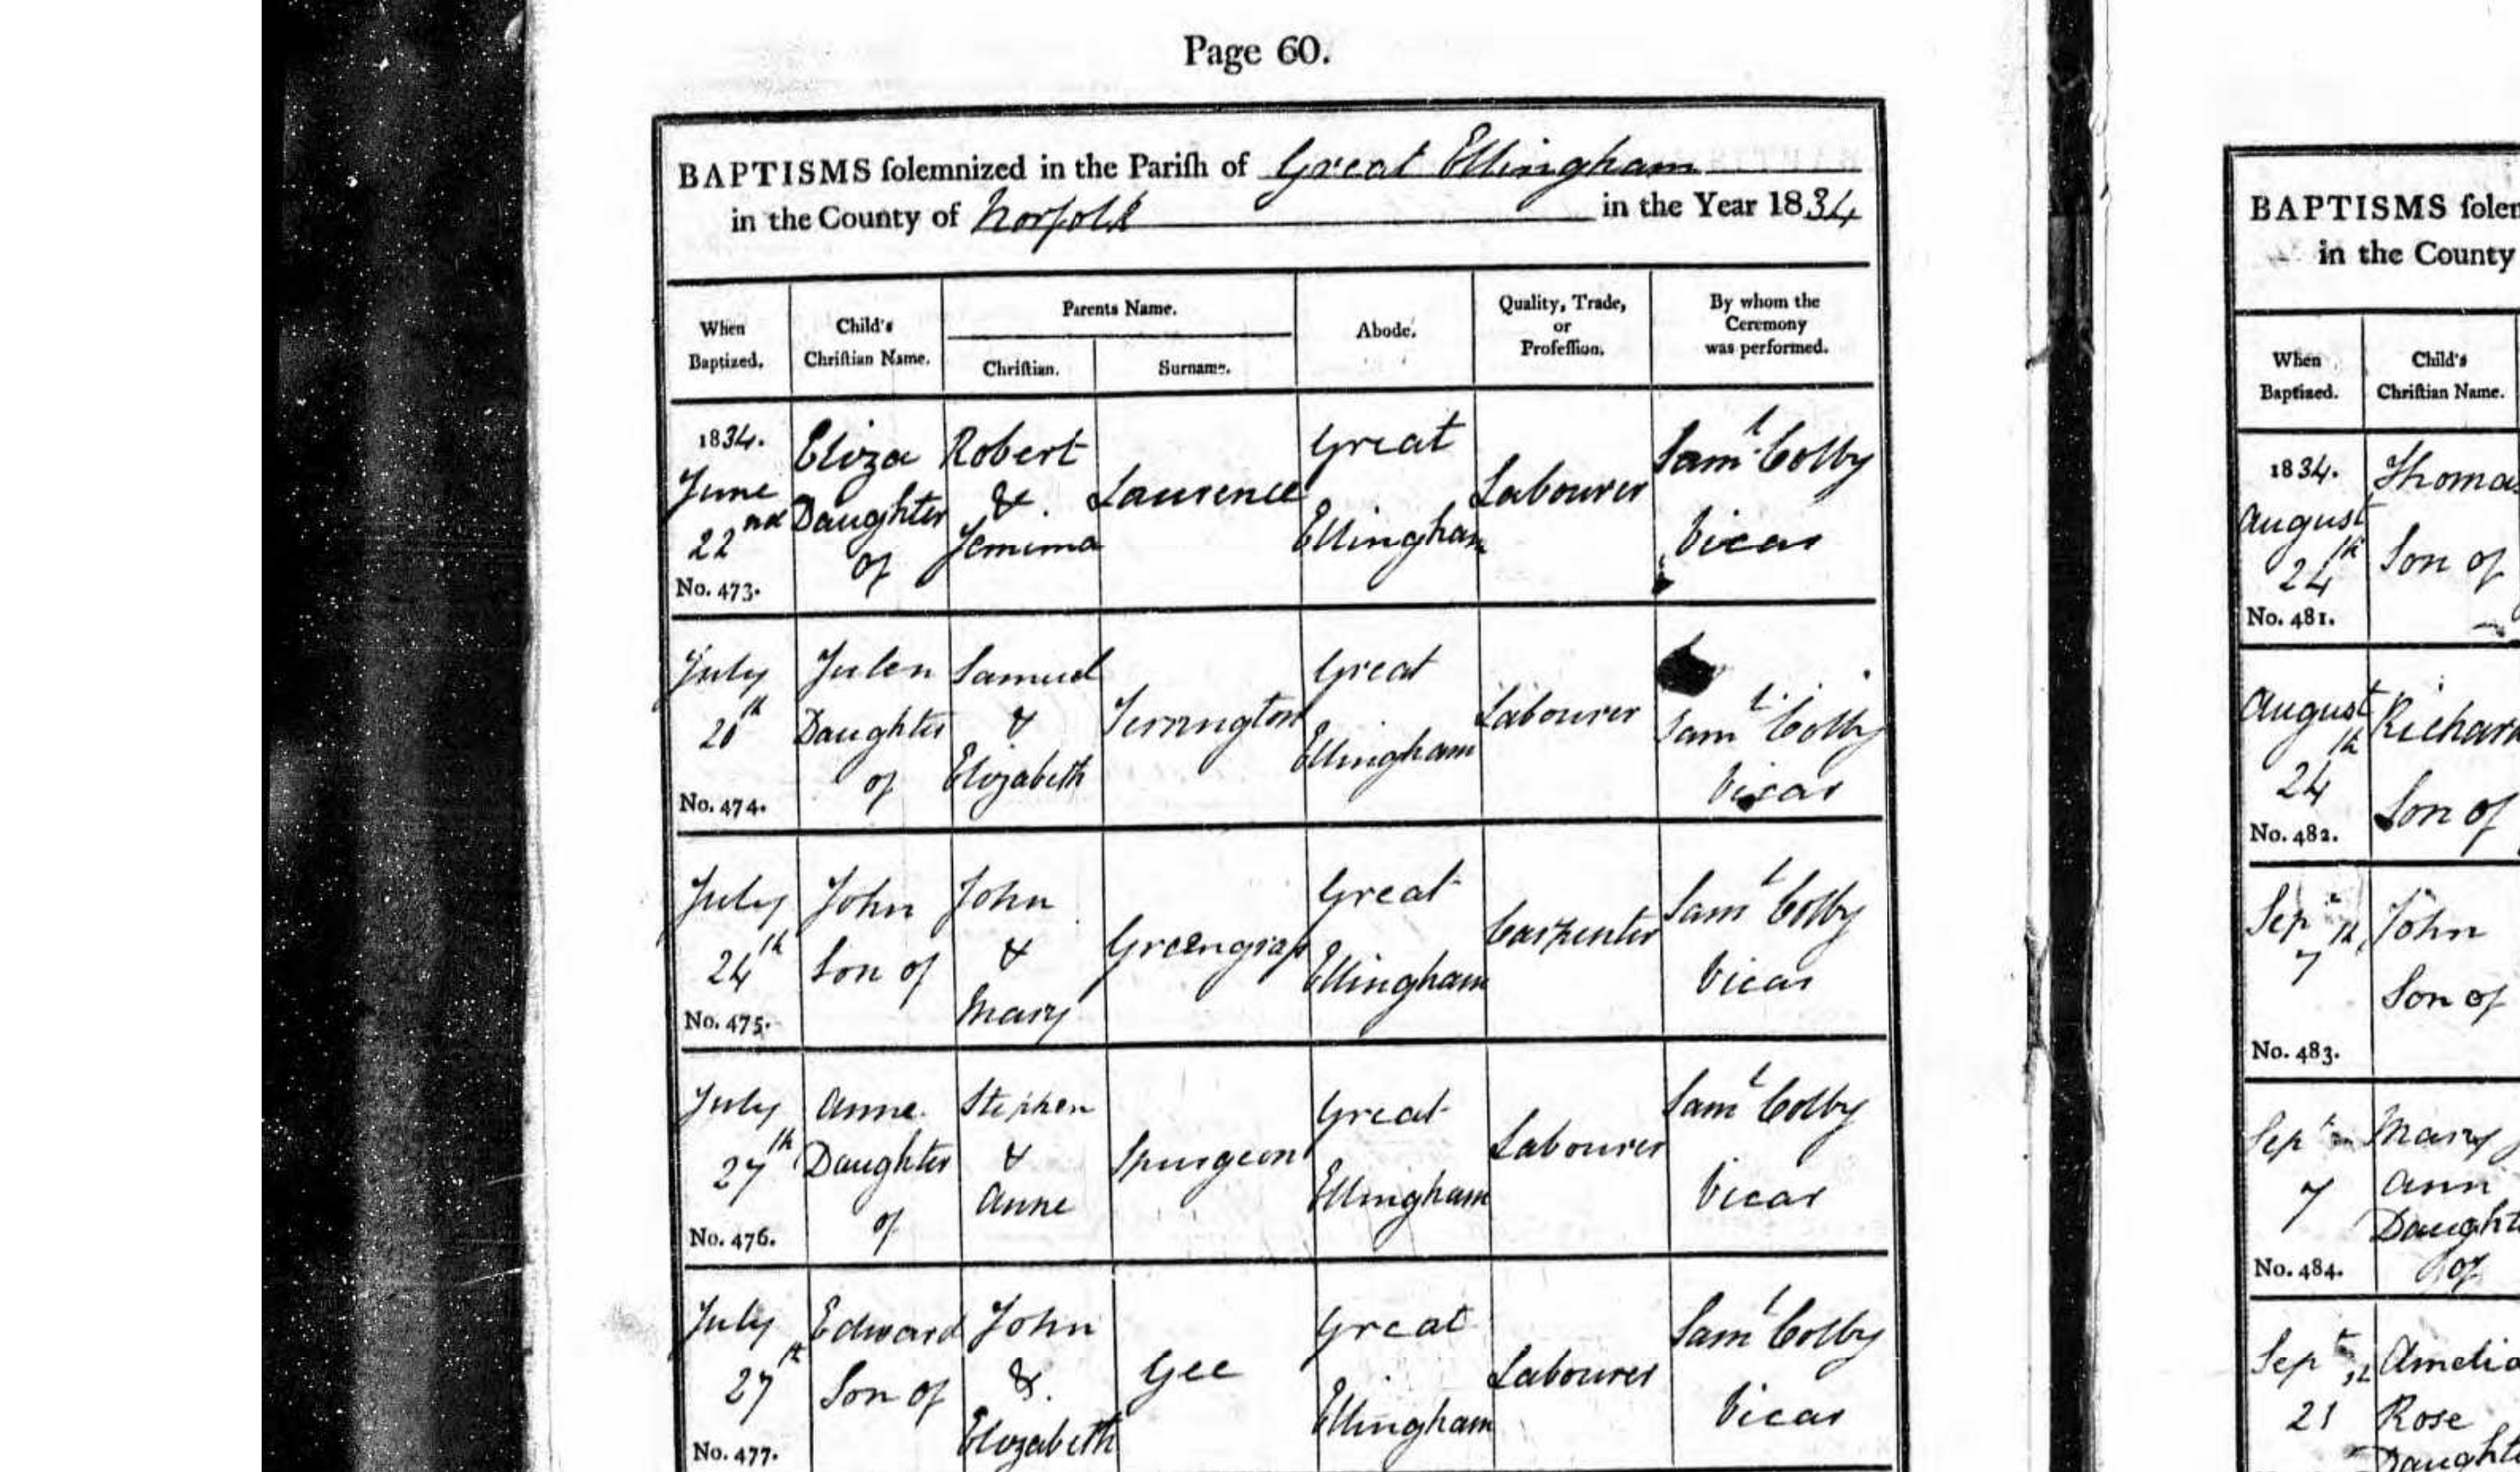 Page 60.
BAPTISMS solemnized in the Parish of Great Ellingham
in the County of Norfolk in the Year 1834
When Baptized.
Child's Christian Name.
Parents Name.
Christian.
Surname.
Abode.
Quality, Trade, or Profession.
By whom the Ceremony was performed.
1834.
June
22nd
No. 473.
Eliza
Daughter
of
Robert
&
Jemima
Laurence
Great
Ellingham
Labourer
Saml Colby
Vicar
July
20th
No. 474.
Julen
Daughter
of
Samuel
&
Elizabeth
Great
Ellingham
Labourer
Saml Colby
Vicar
July
24th
No. 475.
John
Son of
John
&
Mary
Greengrass
Great
Ellingham
Carpenter
Saml Colby
Vicar
July
27th
No. 476.
Anne
Daughter
of
Stephen
&
Anne
Spurgeon
Great
Ellingham
Labourer
Saml Colby
Vicar
July
27th
No. 477.
Edward
Son of
John
&
Elizabeth
Gee
Great
Ellingham
Labourer
Saml Colby
Vicar
BAPTISMS solem
in the County
When Baptized.
Child's Christian Name.
1834.
August
24th
No. 481.
Thoma
Son of
August
24th
No. 482.
Richar
Son of
Sep
7th
No. 483.
John
Son of
Sept
7
No. 484.
Mary
Ann
Daught
of
Sept
21
Amelia
Rose
Daught